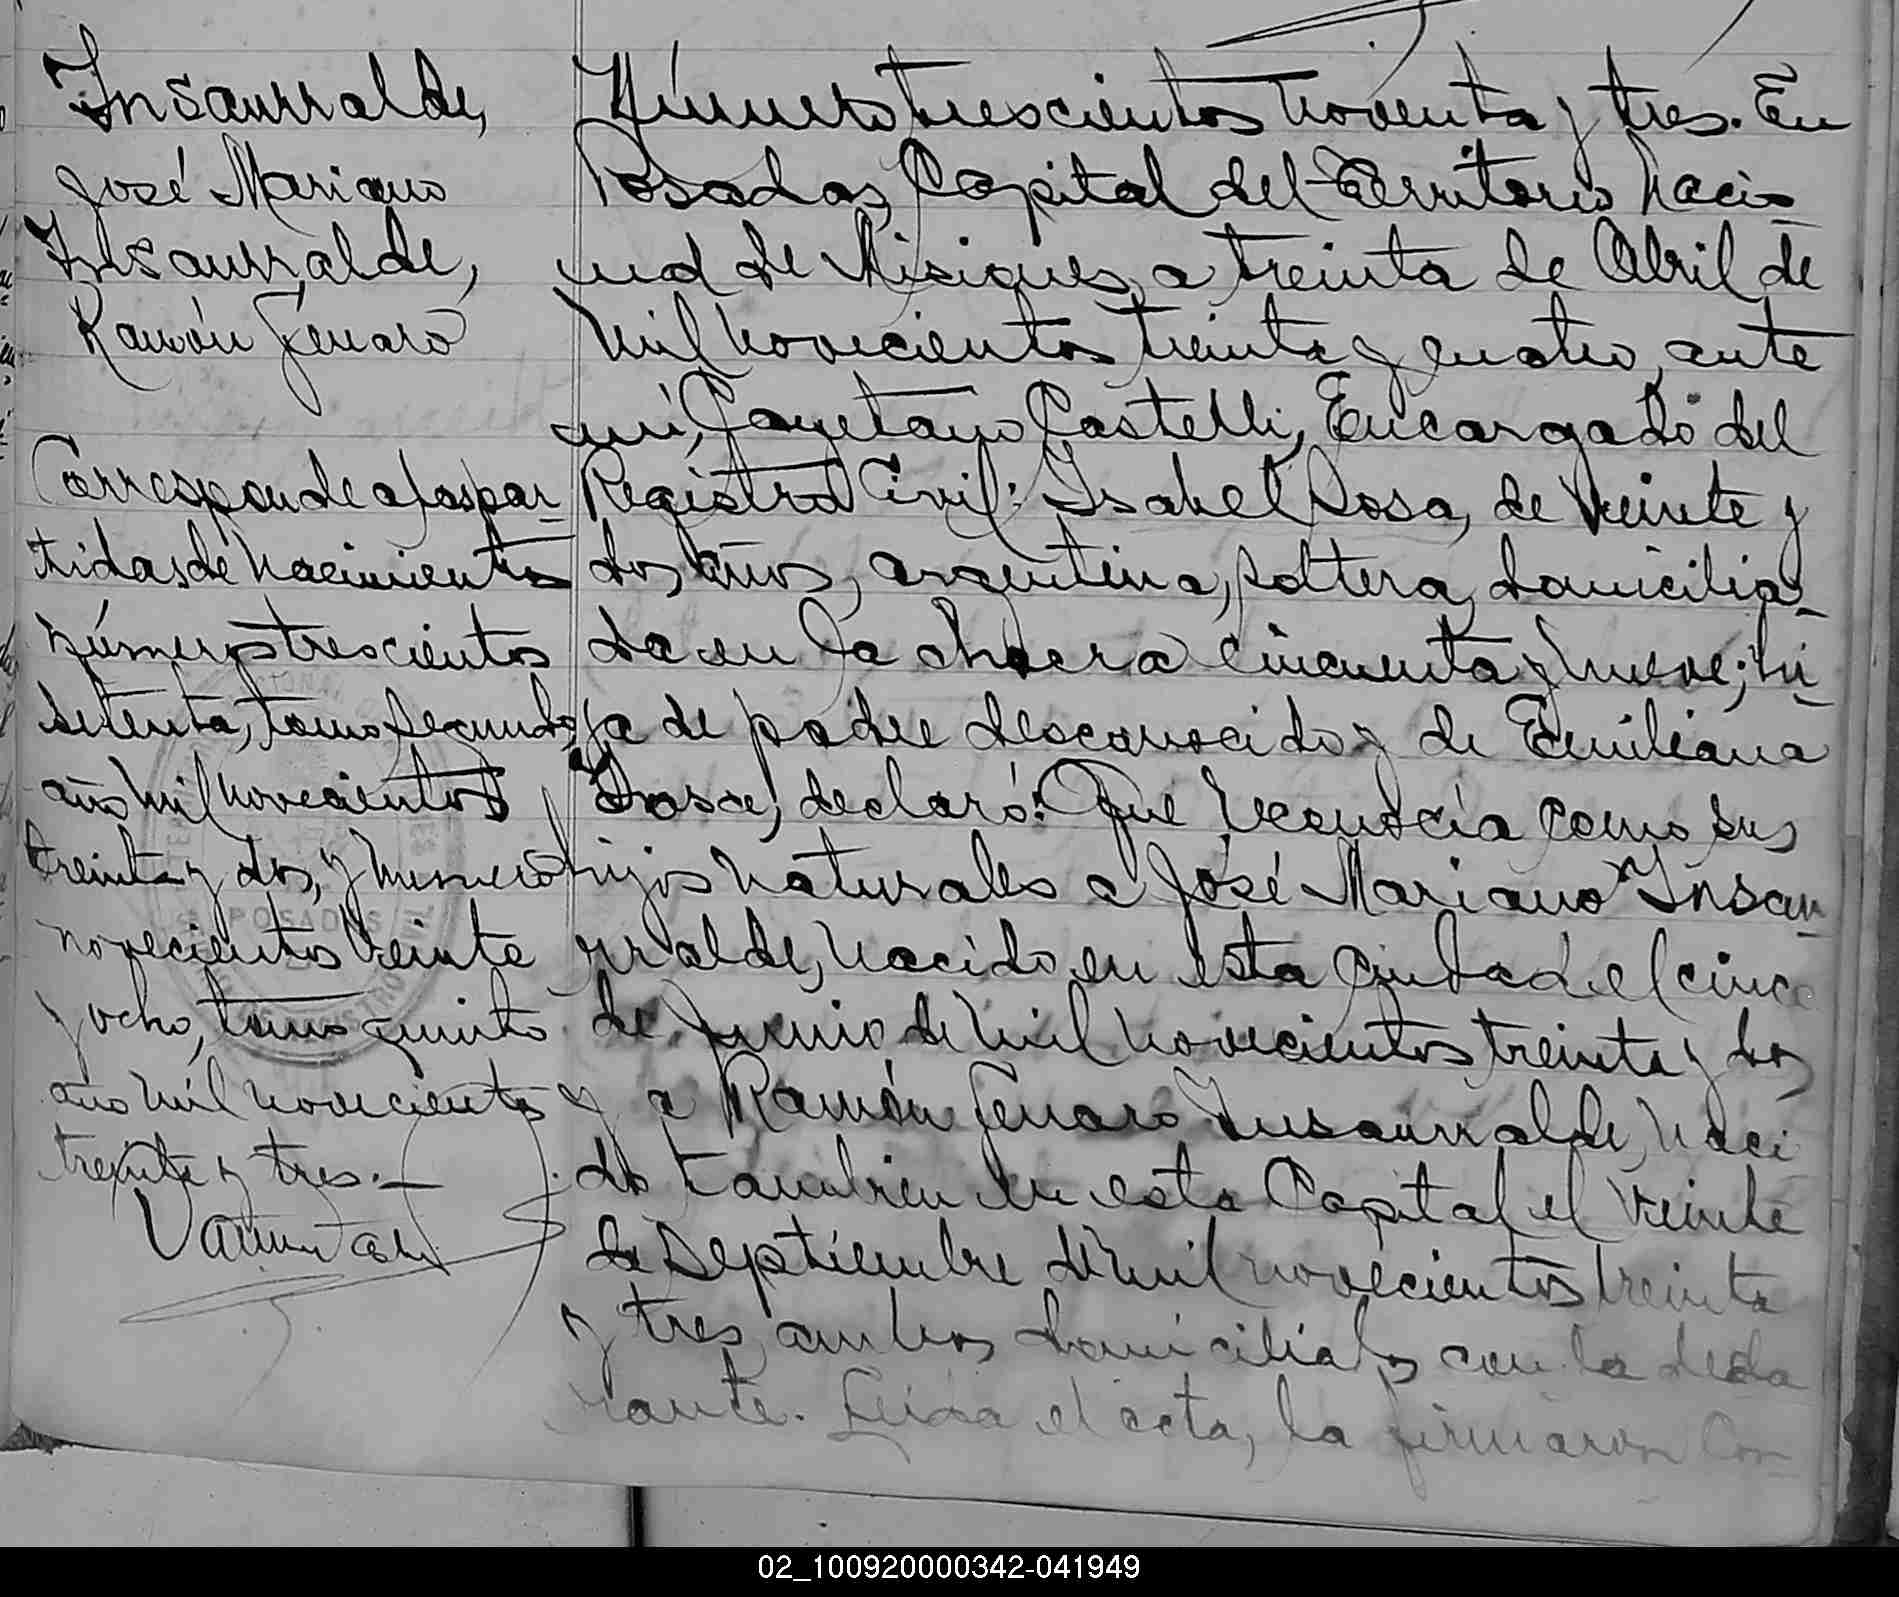 Insaurralde,
José Mariano
Insaurralde,
Ramón Genaro
Corresponde a las par-
tidas de nacimientos
números trescientos
setenta, tomo segundo,
año mil novecientos
treinta y dos, y número
novecientos veinte
y ocho, tomo quinto
año mil novecientos
treinta y tres.—
Número trescientos noventa y tres. En
Posadas, Capital del Territorio nacio-
nal de Misiones, a treinta de Abril de
mil novecientos treinta y cuatro, ante
mí, Cayetano Castelli, Encargado del
Registro Civil: Isabel Sosa, de veinte y
dos años, argentina, soltera, domicilia-
da en la chacra cincuenta y nueve; hi-
ja de padre desconocido y de Emiliana
Sosa, declaró: Que reconocía como sus
hijos naturales a José Mariano Insau-
rralde, nacido en esta Ciudad el cinco
de Junio de mil novecientos treinta y dos
y a Ramón Genaro Insaurralde, naci
do tambien en esta Capital el veinte
de Septiembre de mil novecientos treinta
y tres, ambos domiciliados con la decla
rante. Leida el acta, la firmaron con-
POSADAS
02_100920000342-041949